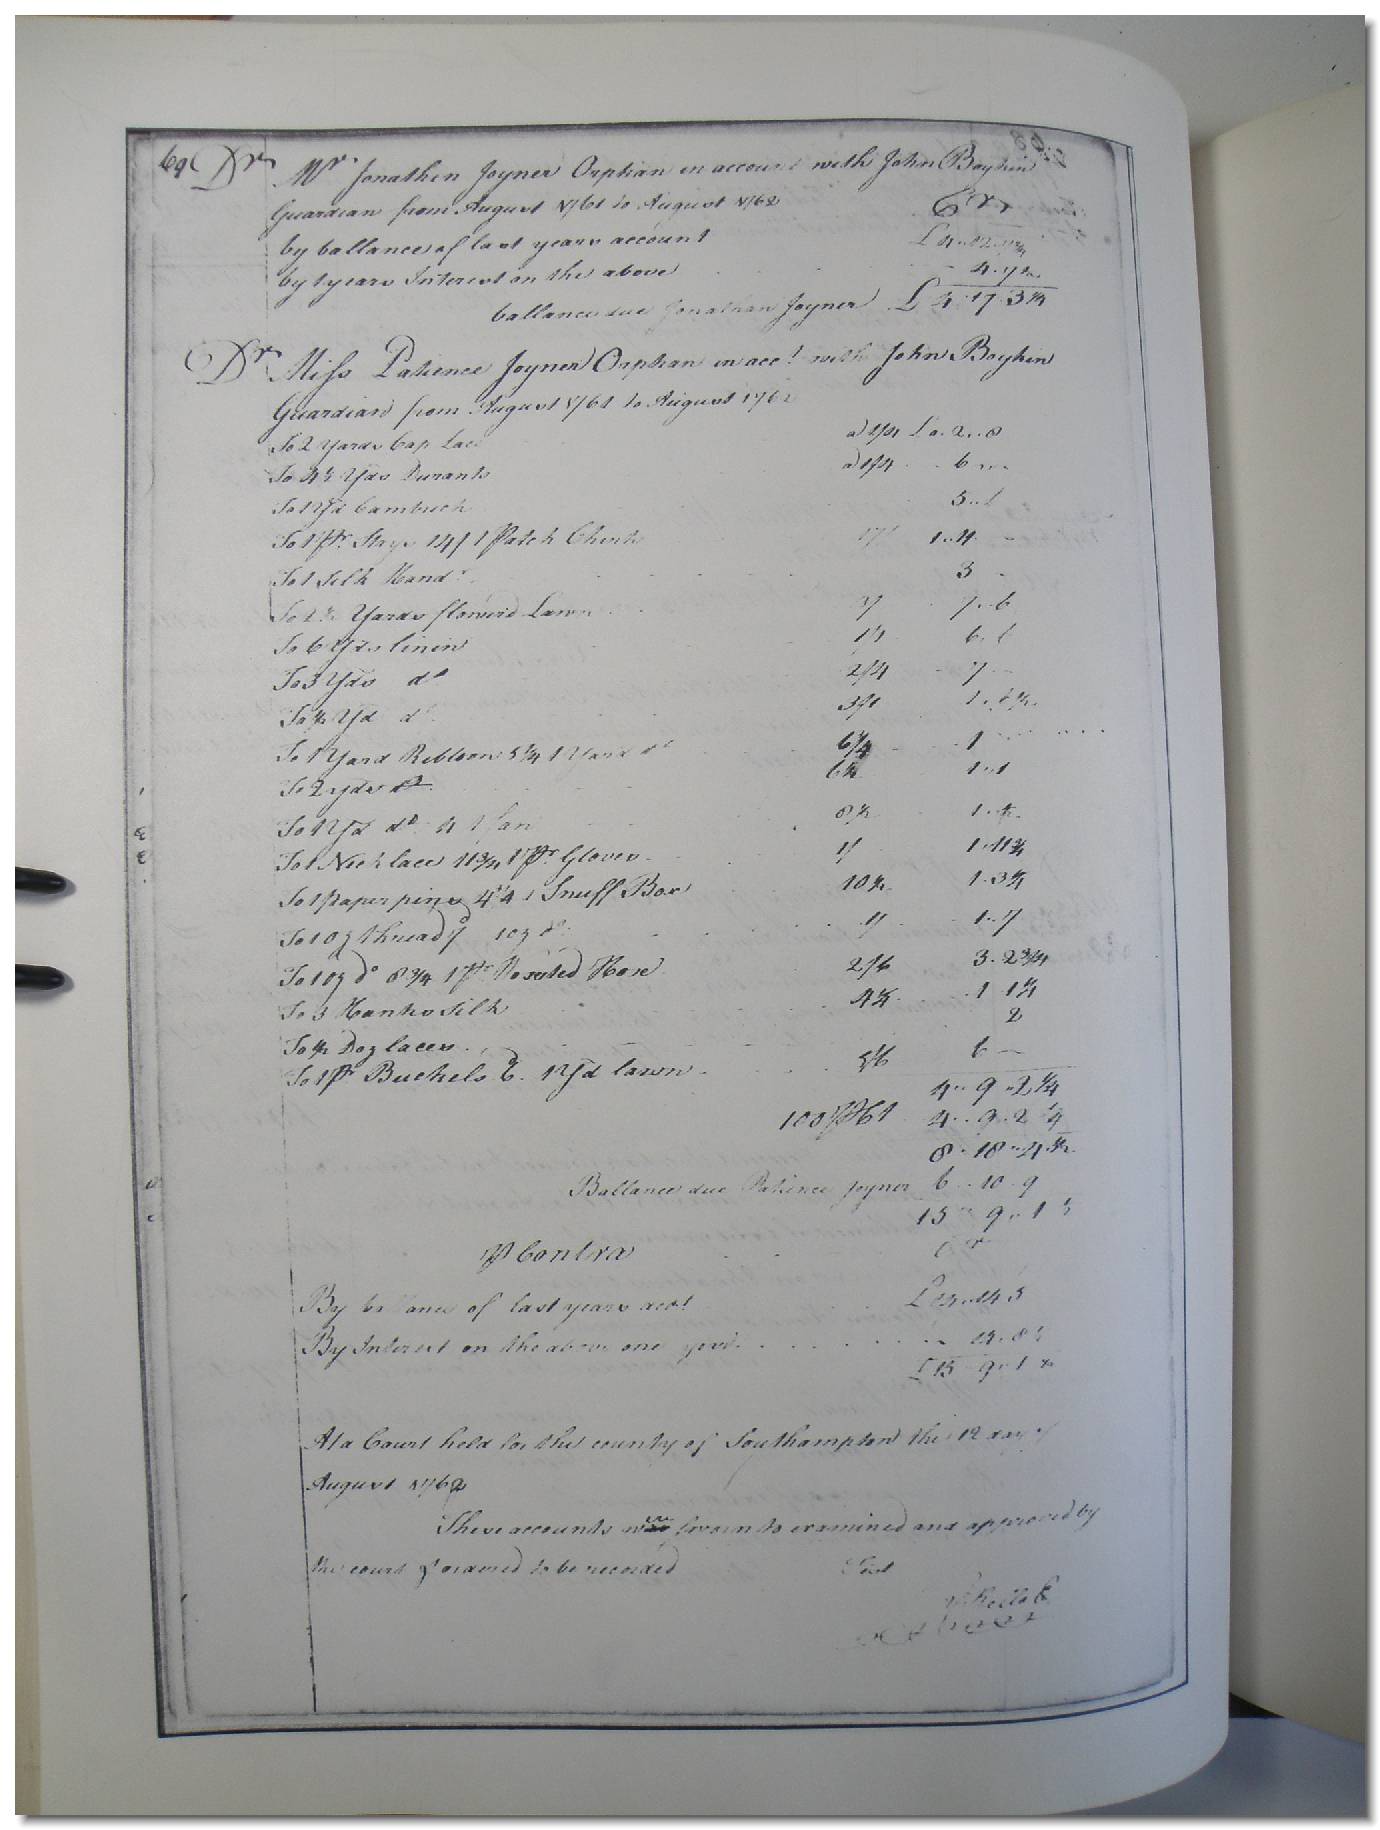 69 Dr Mr. Jonathen Joyner Orphan in account with John Boykin
Guardian from August 1761 to August 1762 Cr
by ballance of last years account £4..12..
by 1 years Interest on the above 4.7½
ballance due Jonathan Joyner £4.17.3¼
Dr Miss Patience Joyner Orphan in acct. with John Boykin
Guardian from August 1761 to August 1762
To 2 Yards Cap Lace a 1/4 £0.2..8
To 4½ Yds Durants a 1/4 6
To 1 Yd Cambrick 5..
To 1 pr. Stays 14/ 1 Patch 1..4
To 1 Silk Hand 3
To 2½ Yards flowerd Lawn 3/ 7..6
To 6 Yds linin 1/1 6.6
To 3 Yds do 2/4 7
To ½ Yd do 3/1 1.6½
To 1 Yard Ribboon 5¾ 1 Yard do 6¼ 1
To 2 yds do 6½ 1.1
To 1 Yd do 4 1 fan 8½ 1.½
To 1 Necklace 11¾ 1 pr. Gloves 1/ 1.11¾
To 1 paper pins 4¾ 1 Snuff Box 10½ 1.3¼
To 1 oz thread 7 1 oz do 1/ 1.7
To 1 oz do 8¾ 1 pr. Worsted Hose 2/6 3.2¾
To 3 Hanks Silk 4½ 1 1½
To ½ Doz laces 2
To 1 pr Buckels 6. 1 Yd lawn 5/6 6
4..9..2¼
100 4..9..2¼
8..18..4½
Ballance due Patience Joyner 6..10.9
15..9..1½
Contra Cr
By ballance of last years acct £14..14 5
By Interest on the above one year 14.8½
£15 9..1½
At a Court held for the county of Southampton the 12 day of
August 1762
These accounts were sworn to examined and approved by
the court & ordered to be recorded Test